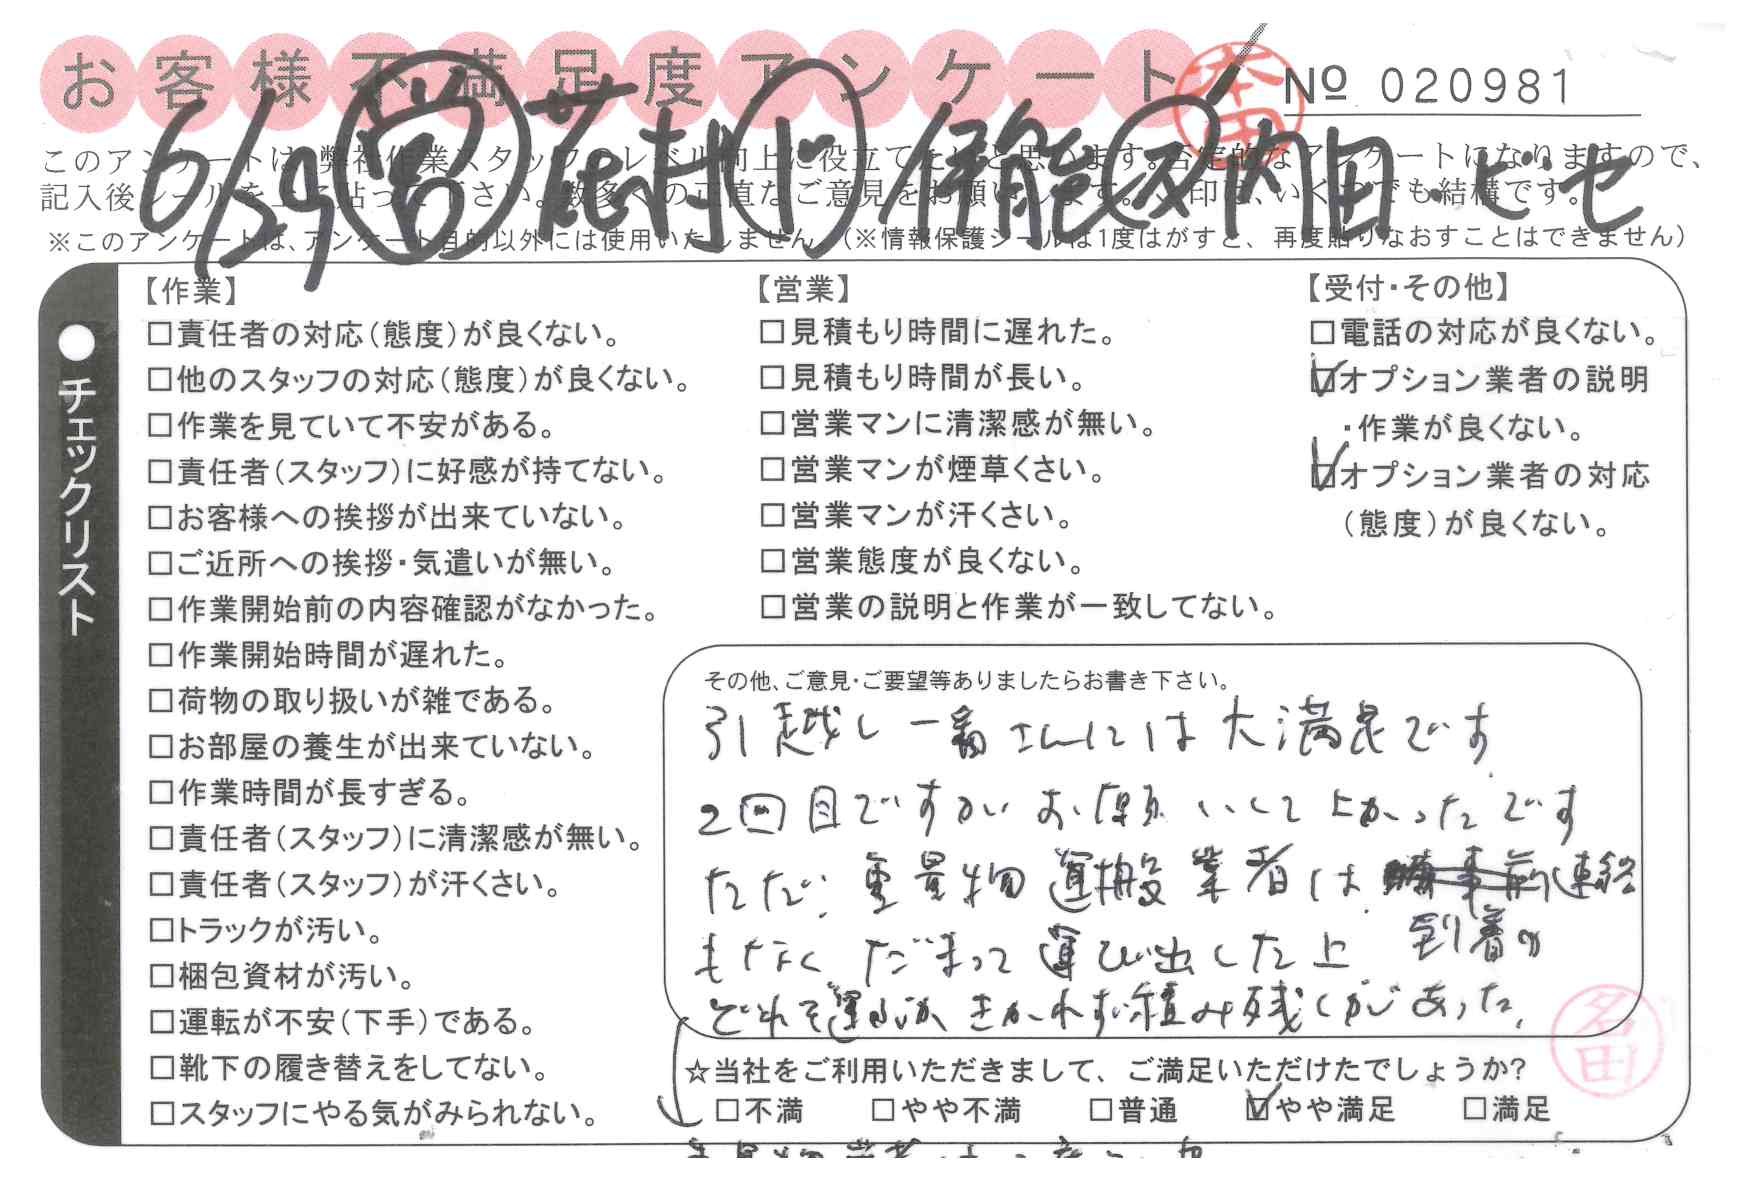 お客様不満足度アンケート
№ 020981
本田
6/29 営 花村 ド 伊能 反 内田 ヒセ
このアンケートは、弊社作業スタッフのレベル向上に役立てたいと思います。否定的なアンケートになりますので、
記入後シールを上に貼って下さい。数多くの正直なご意見をお願いします。✓印は、いくつでも結構です。
※このアンケートは、アンケート目的以外には使用いたしません。(※情報保護シールは1度はがすと、再度貼りなおすことはできません)
●チェックリスト
【作業】
□責任者の対応(態度)が良くない。
□他のスタッフの対応(態度)が良くない。
□作業を見ていて不安がある。
□責任者(スタッフ)に好感が持てない。
□お客様への挨拶が出来ていない。
□ご近所への挨拶・気遣いが無い。
□作業開始前の内容確認がなかった。
□作業開始時間が遅れた。
□荷物の取り扱いが雑である。
□お部屋の養生が出来ていない。
□作業時間が長すぎる。
□責任者(スタッフ)に清潔感が無い。
□責任者(スタッフ)が汗くさい。
□トラックが汚い。
□梱包資材が汚い。
□運転が不安(下手)である。
□靴下の履き替えをしてない。
□スタッフにやる気がみられない。
【営業】
□見積もり時間に遅れた。
□見積もり時間が長い。
□営業マンに清潔感が無い。
□営業マンが煙草くさい。
□営業マンが汗くさい。
□営業態度が良くない。
□営業の説明と作業が一致してない。
【受付・その他】
□電話の対応が良くない。
☑オプション業者の説明
・作業が良くない。
☑オプション業者の対応
(態度)が良くない。
その他、ご意見・ご要望等ありましたらお書き下さい。
引越し一番さんには大満足です
2回目ですがお願いしてよかったです
ただ、重量物運搬業者は 事前連絡
到着の
もなくだまって運び出した上
どれを運ぶかきかれず積み残しがあった。
名田
☆当社をご利用いただきまして、ご満足いただけたでしょうか?
□不満 □やや不満 □普通 ☑やや満足 □満足